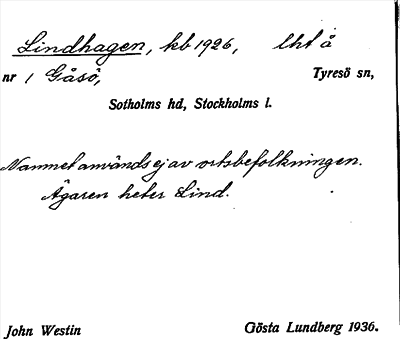 Lindhagen, kb 1926, lht å
nr 1 Gåsö, Tyresö sn,
Sotholms hd, Stockholms l.
Namnet används ej av ortsbefolkningen.
Ägaren heter Lind.
John Westin Gösta Lundberg 1936.